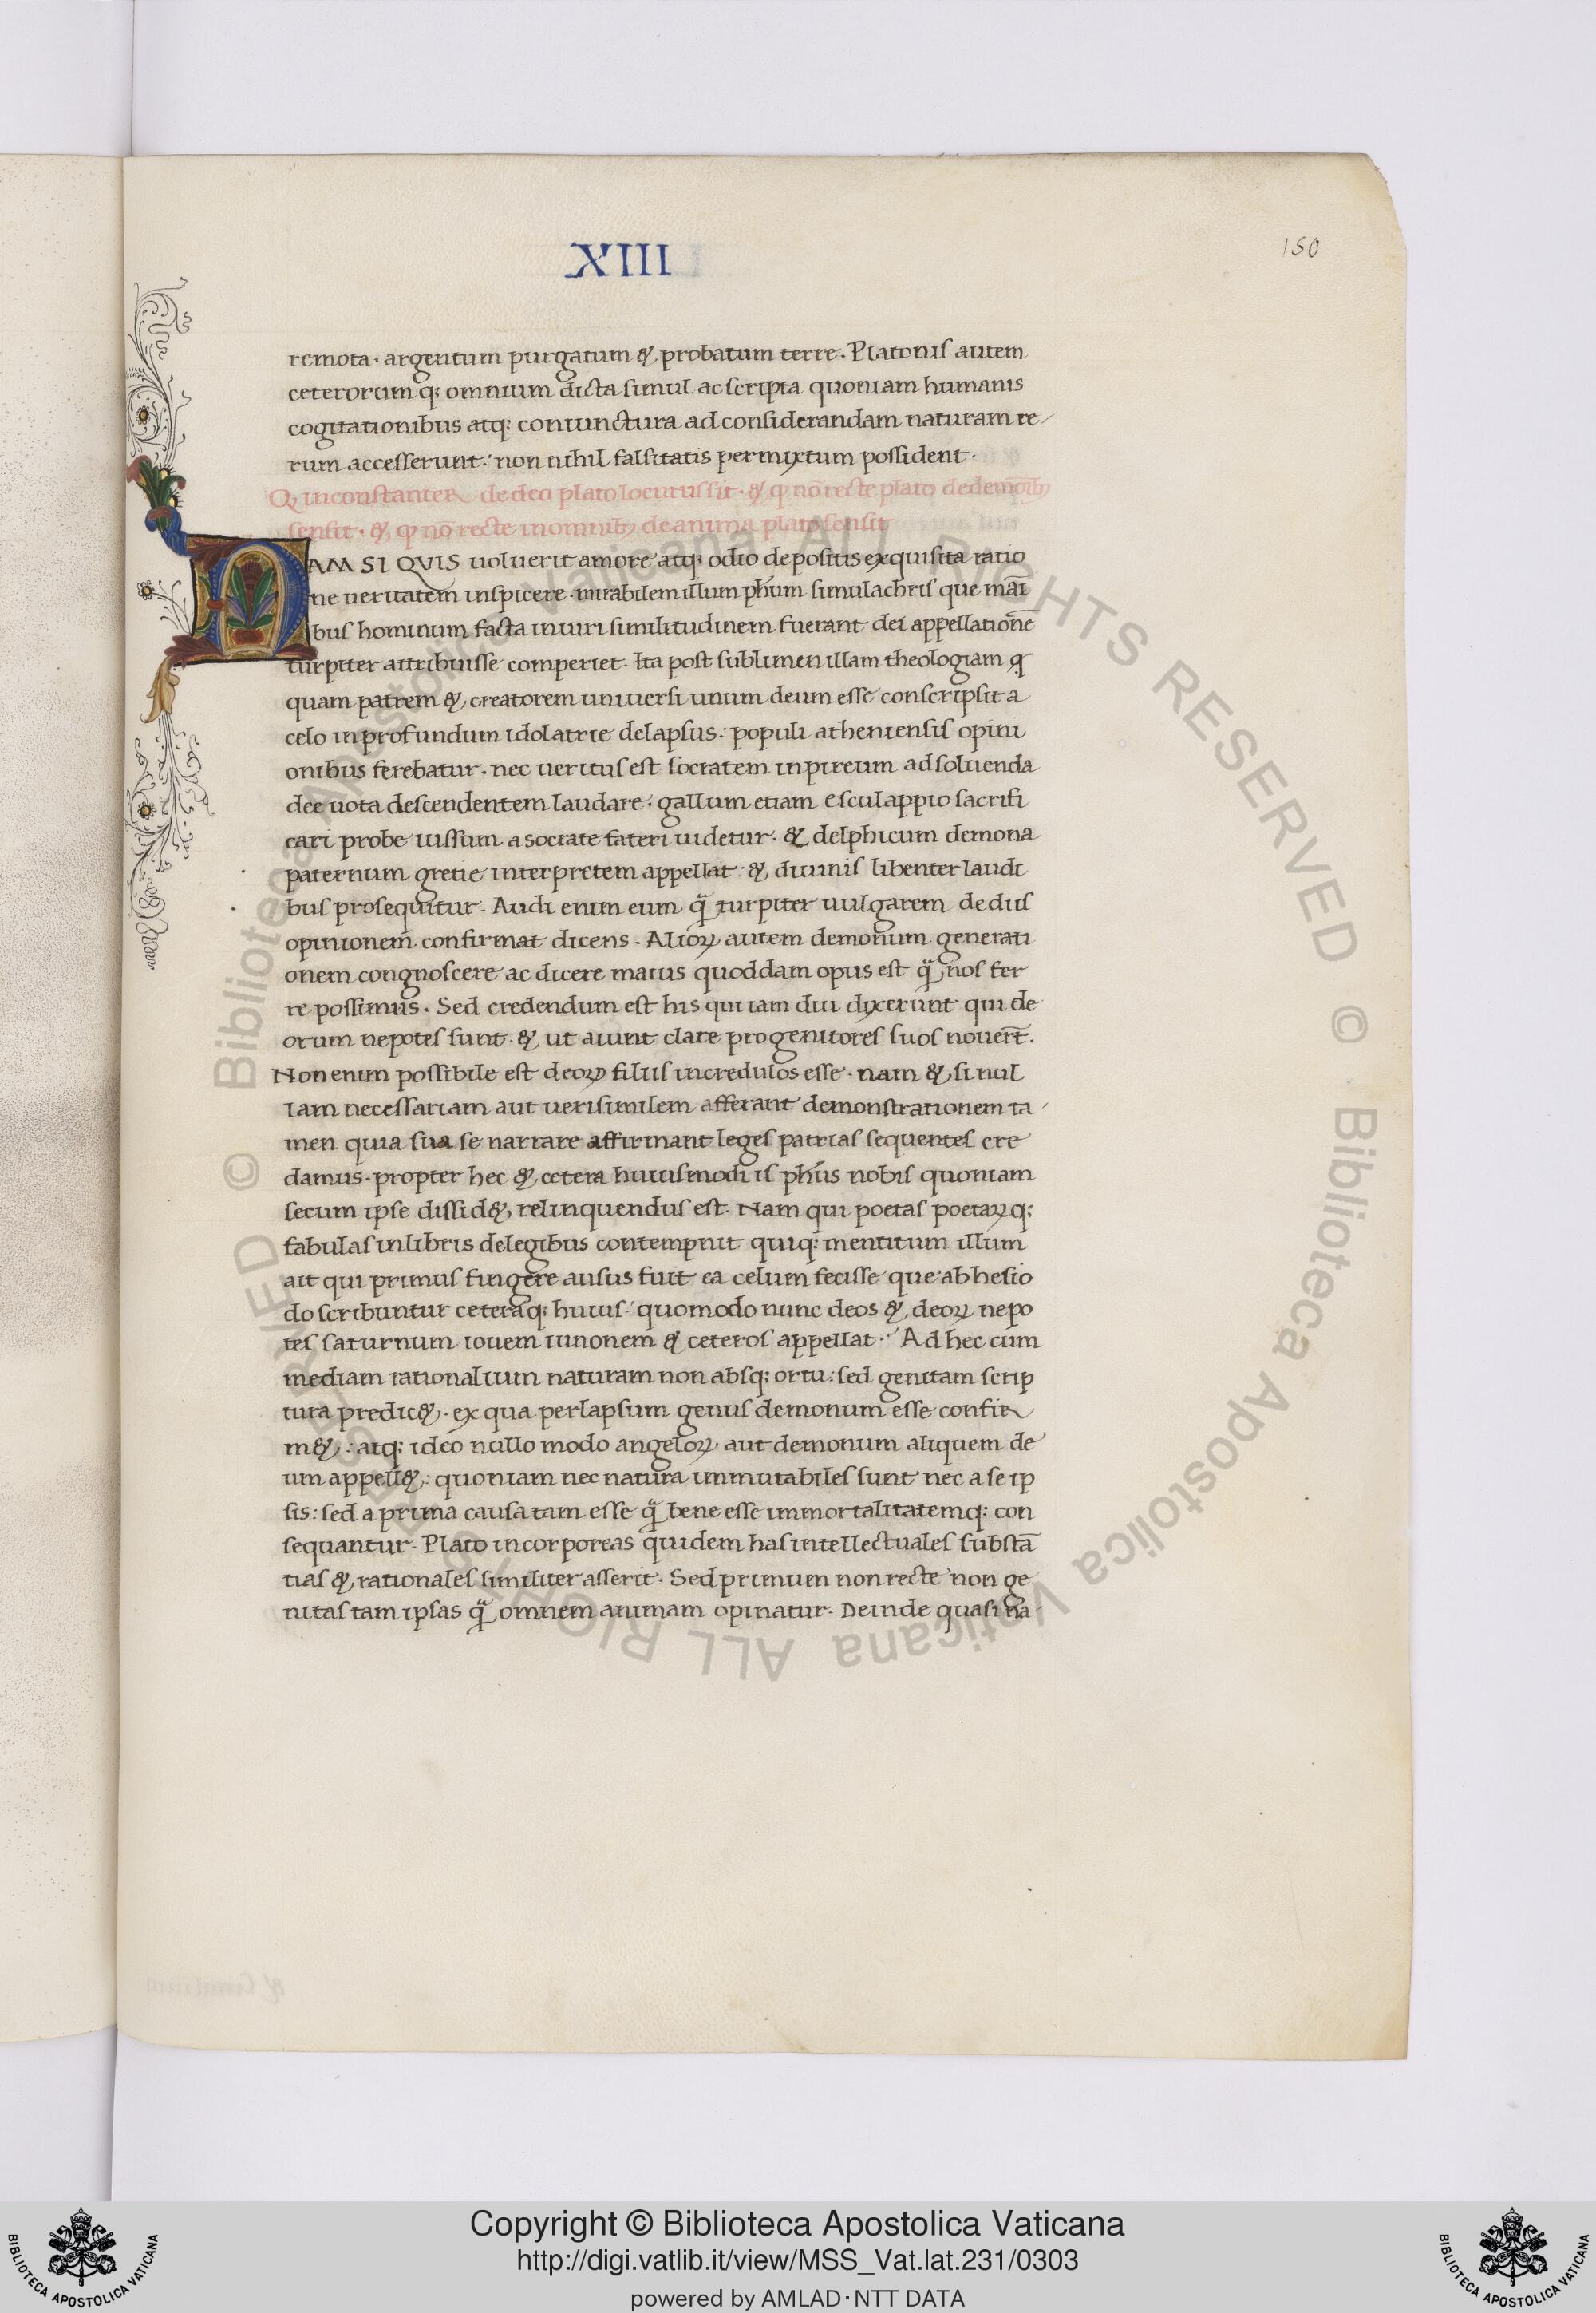 XIII
150
remota. argentum purgatum & probatum terre. Platonis autem
ceterorumq; omnium dicta simul ac scripta quoniam humanis
cogitationibus atq; coniunctura ad considerandam naturam re
rum accesserunt: non nihil falsitatis permixtum possident.
Q inconstanter de deo plato locutus sit. & ꝙ nō recte plato de demoībꝫ
sensit. & ꝙ nō recte in omnibꝫ de anima plato sensit
NAM SI QVIS uoluerit amore atq; odio depositis exquisita ratio
ne ueritatem inspicere. mirabilem illum ph̄um simulachris que maī
bus hominum facta in uiri similitudinem fuerant dei appellationē
turpiter attribuisse comperiet. Ita post sublimen illam theologiam ꝙ
quam patrem & creatorem uniuersi unum deum esse conscripsit a
celo in profundum idolatrie delapsus: populi atheniensis opini
onibus ferebatur. nec ueritus est socratem in pireum ad soluenda
dee uota descendentem laudare. gallum etiam esculappio sacrifi
cari probe iussum a socrate fateri uidetur. & delphicum demona
paternum gretie interpretem appellat: & diuinis libenter laudi
bus prosequitur. Audi enim eum q̈ turpiter uulgarem de diis
opinionem confirmat dicens. Alioꝝ autem demonum generati
onem congnoscere ac dicere maius quoddam opus est q̈ nos fer
re possimus. Sed credendum est his qui iam diu dixerunt qui de
orum nepotes sunt: & ut aiunt clare progenitores suos nouerт̄.
Non enim possibile est deoꝝ filiis incredulos esse. nam & si nul
lam necessariam aut uerisimilem afferant demonstrationem ta
men quia sua se narrare affirmant leges patrias sequentes cre
damus. propter hec & cetera huiusmodi is ph̄us nobis quoniam
secum ipse dissid& relinquendus est. Nam qui poetas poetaꝝq;
fabulas in libris de legibus contempnit quiq; mentitum illum
ait qui primus fingere ausus fuit ea celum fecisse que ab hesio
do scribuntur ceteraq; huius: quomodo nunc deos & deoꝝ nepo
tes saturnum iouem iunonem & ceteros appellat. Ad hec cum
mediam rationalium naturam non absq; ortu: sed genitam scrip
tura predic&. ex qua perlapsum genus demonum esse confir
m&: atq; ideo nullo modo angeloꝝ aut demonum aliquem de
um appell&: quoniam nec natura immutabiles sunt nec a se ip
sis: sed a prima causa tam esse q̈ bene esse immortalitatemq; con
sequantur. Plato incorporeas quidem has intellectuales substā
tias & rationales similiter asserit. Sed primum non recte non ge
nitas tam ipsas q̈ omnem animam opinatur. Deinde quasi na
Copyright © Biblioteca Apostolica Vaticana
http://digi.vatlib.it/view/MSS_Vat.lat.231/0303
powered by AMLAD·NTT DATA
BIBLIOTECA APOSTOLICA VATICANA
BIBLIOTECA APOSTOLICA VATICANA
© Biblioteca Apostolica Vaticana ALL RIGHTS RESERVED
© Biblioteca Apostolica Vaticana ALL RIGHTS RESERVED